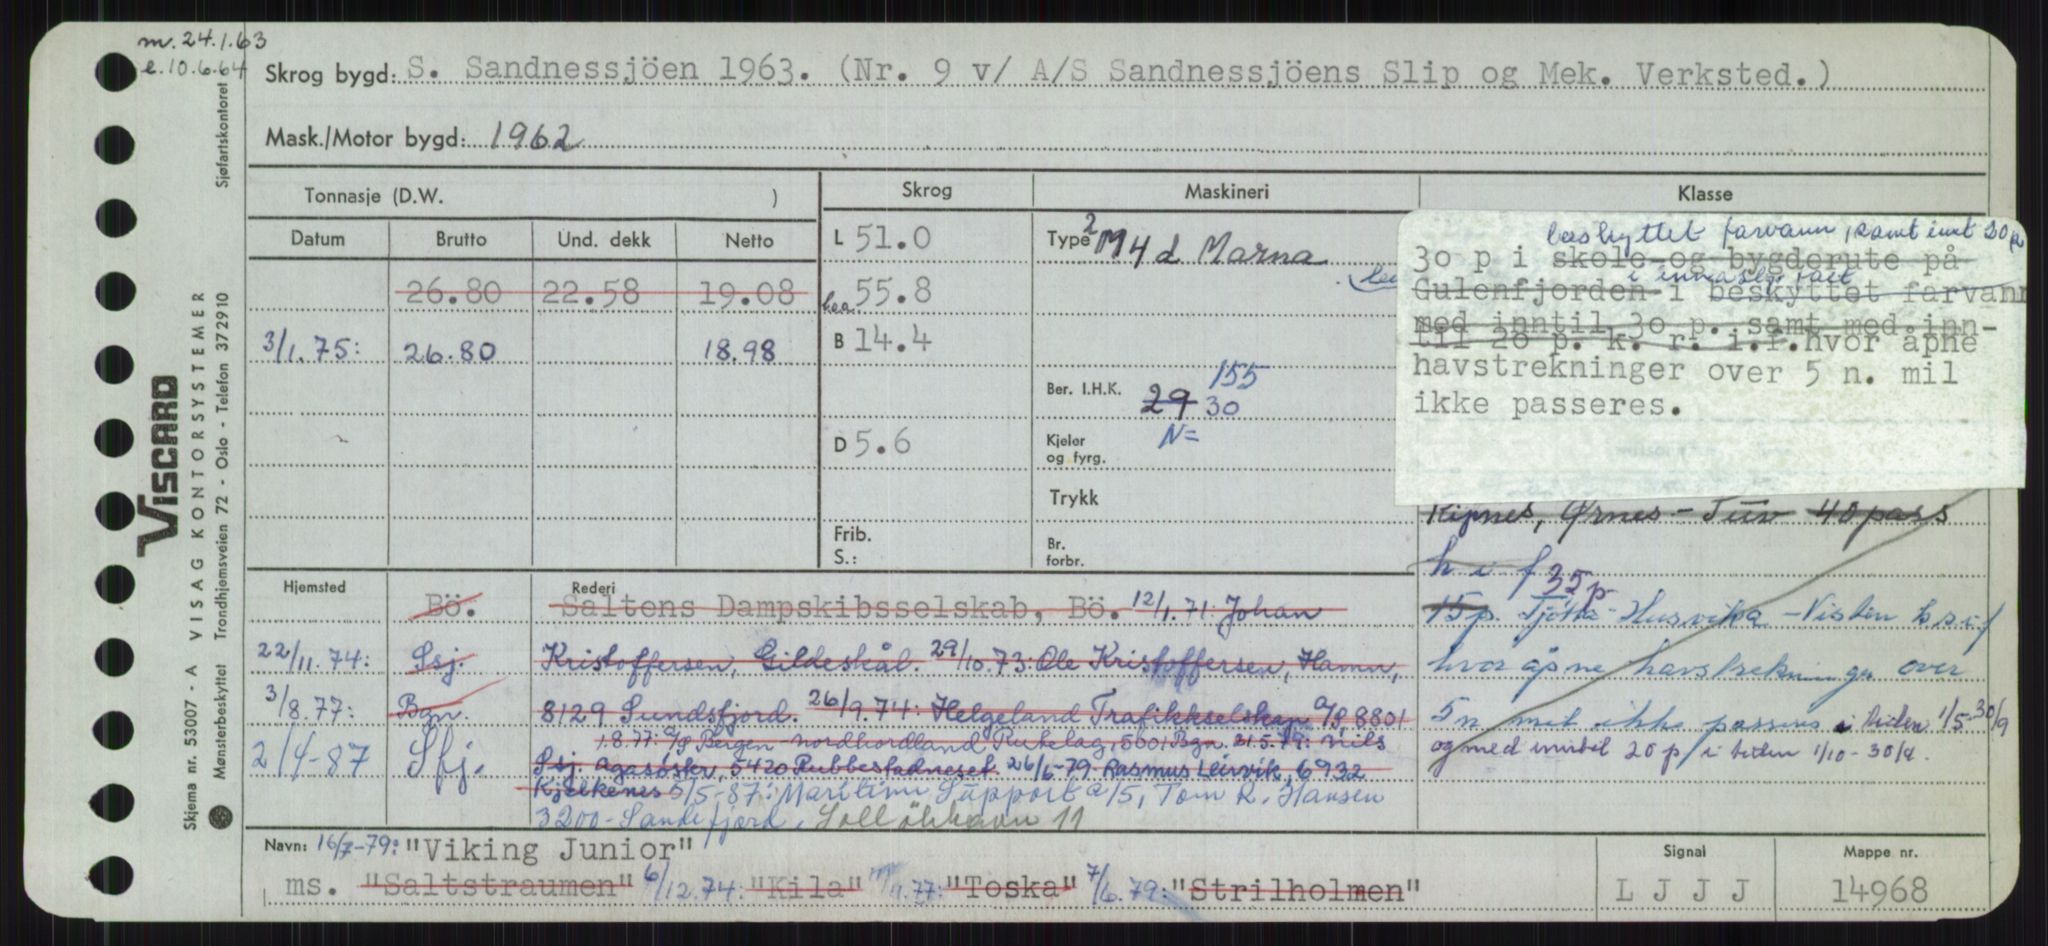 m. 24.1.63
e. 10.6.64
Skrog bygd: S. Sandnessjöen 1963. (Nr. 9 v/ A/S Sandnessjöens Slip og Mek. Verksted.)
Mask./Motor bygd: 1962
Tonnasje (D.W. )
Skrog
Maskineri
Klasse
Datum Brutto Und. dekk Netto
26.80 22.58 19.08
3/1.75: 26.80 18.98
L 51.0
loa. 55.8
B 14.4
D 5.6
Frib.
S.:
Type 2 M 4 d Marna
155
Ber. I.H.K. 29 30
N=
Kjeler
og fyrg.
Trykk
Br.
forbr.
beskyttet farvann, samt inntil 20 p
30 p i skole-og bygderute på
i innaskj. fart
Gulenfjorden i beskyttet farvann
med inntil 30 p. samt med inn-
til 20 p. k. r. i.f. hvor åpne
havstrekninger over 5 n. mil
ikke passeres.
Kipnes, Ørnes - Tuv 40 pass
h i f
35 p
15 p. Tjötta - Husvika - Visten
hvor åpne havstrekninger over
5 n. mil ikke passeres i tiden 1/5-30/9
og med inntil 20 p i tiden 1/10-30/4.
Hjemsted
Rederi
Bö. Saltens Dampskibsselskab, Bö. 12/1.71: Johan
22/11.74: Ssj. Kristoffersen, Gildeskål. 29/10.73: Ole Kristoffersen, Hamn,
3/8.77: Bgn. 8129 Sundsfjord. 26/9.74: Helgeland Trafikkselskap A/S 8801
1.8.77: A/S Bergen-Nordhordland Rutelag, 5001 Bgn. 31.5.79: Nils
2/4-87 Sfj. Ssj. Agasøster, 5420 Rubbestadneset. 26/6-79 Rasmus Leirvik, 6932
Kjelkenes 5/5-87: Maritim Support a/s, Tom R. Hansen
3200-Sandefjord,
Navn: 16/7-79: "Viking Junior"
ms. "Saltstraumen" 6/12.74: "Kila" "Toska" 7/6.79: "Strilholmen"
Signal
L J J J
Mappe nr.
14968
VISCARD
Skjema nr. 53007 - A VISAG KONTORSYSTEMER
Mønsterbeskyttet Trondhjemsveien 72 - Oslo - Telefon 372910
Sjøfartskontoret